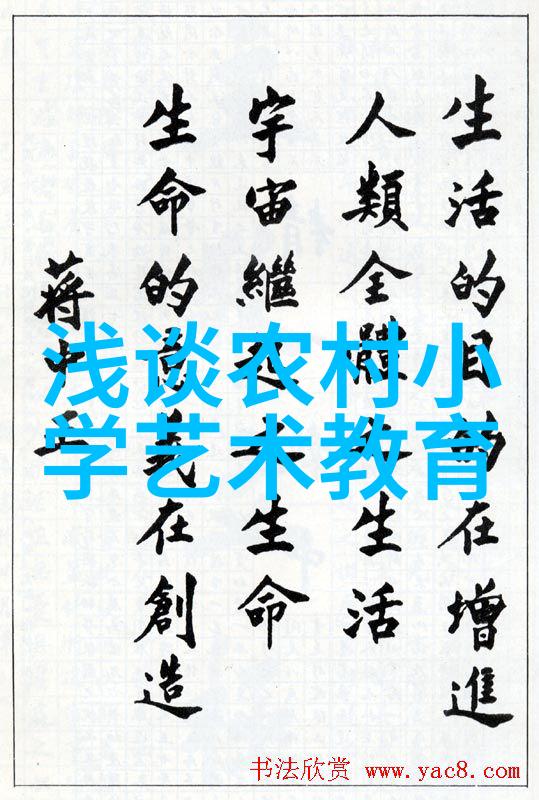 生活的目的在增進
人類全體之生活
生命的意義在創造
宇宙繼起之生命
蔣中正
浅谈农村小
学艺术教育
书法欣赏 www.yac8.com